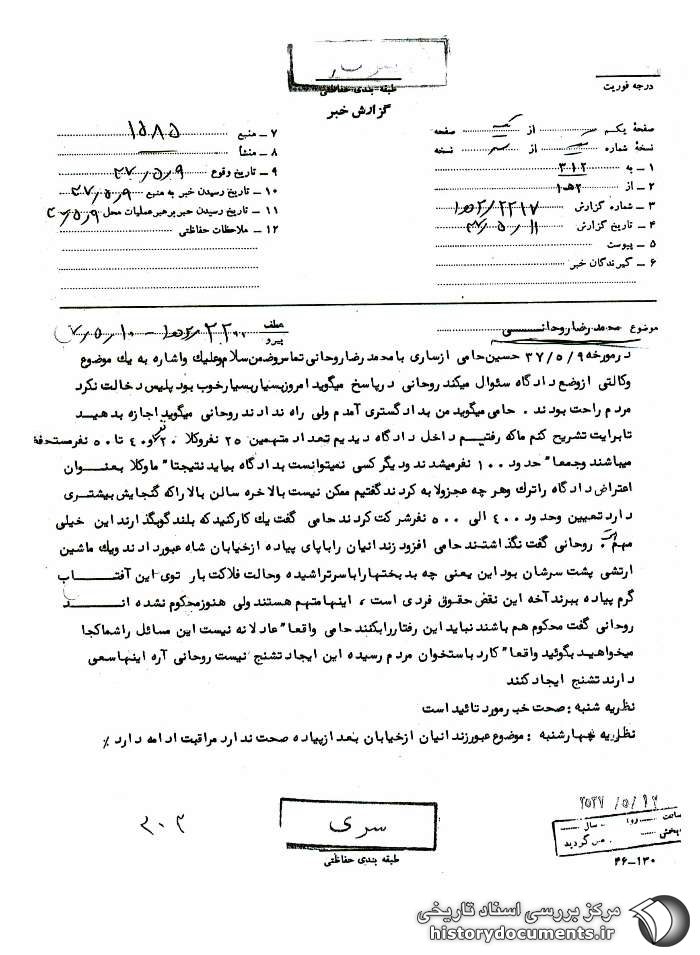 سری
طبقه بندی حفاظتی
گزارش خبر
درجه فوریت
صفحهٔ یکم از یک صفحه
نسخهٔ شماره از نسخه
۱ ـ به ۳۱۲
۲ ـ از ۱ﻫ۲
۳ ـ شماره گزارش ۱ﻫ۲/۲۲۱۷
۴ ـ تاریخ گزارش ۳۷/۵/۱۱
۵ ـ پیوست
۶ ـ گیرندگان خبر
۷ ـ منبع ۱۵۸۵
۸ ـ منشأ
۹ ـ تاریخ وقوع ۳۷/۵/۹
۱۰ ـ تاریخ رسیدن خبر به منبع ۳۷/۵/۹
۱۱ ـ تاریخ رسیدن خبر برهبر عملیات محل ۳۷/۵/۹
۱۲ ـ ملاحظات حفاظتی
موضوع محمد رضا روحانی
عطف
پیرو
درمورخه ۳۷/۵/۹ حسین حامی ازساری با محمد رضا روحانی تماس وضمن سلام وعلیك واشاره به یك موضوع
وکالتی ازوضع دادگاه سئوال میکند روحانی درپاسخ میگوید امروز بسیار بسیار خوب بود پلیس دخالت نکرد
مردم راحت بودند . حامی میگوید من بدادگستری آمدم ولی راه ندادند روحانی میگوید اجازه بدهید
تابرایت تشریح کنم ماکه رفتیم داخل دادگاه دیدیم تعداد متهمین ۲۵ نفر وکلا ۲۰ نفر و ٤۰ تا ۵۰ نفر مستحفظ
میباشند وجمعا" حدود ۱۰۰ نفر میشدند ودیگر کسی نمیتوانست بدادگاه بیاید نتیجتا" ما وکلا بعنوان
اعتراض دادگاه راترك وهر چه عجز ولابه کردند گفتیم ممکن نیست بالاخره سالن بالا راکه گنجایش بیشتری
دارد تعیین وحدود ٤۰۰ الی ۵۰۰ نفر شرکت کردند حامی گفت یك کارکنید که بلند گو بگذارند این خیلی
مهم است . روحانی گفت نگذاشتند حامی افزود زندانیان را باپای پیاده ازخیابان شاه عبور دادند ویك ماشین
ارتشی پشت سرشان بود این یعنی چه بدبختها را باسرتراشیده وحالت فلاکت بار توی این آفتاب
گرم پیاده ببرند آخه این نقض حقوق فردی است ، اینها متهم هستند ولی هنوز محکوم نشده اند
روحانی گفت محکوم هم باشند نباید این رفتار رابکنند حامی واقعا" عادلانه نیست این مسائل راشما کجا
میخواهید بگوئید واقعا" کارد باستخوان مردم رسیده این ایجاد تشنج نیست روحانی آره اینها سعی
دارند تشنج ایجاد کنند
نظریه شنبه : صحت خبر مورد تائید است
نظریه چهارشنبه : موضوع عبور زندانیان ازخیابان بعد از پیاده صحت ندارد مراقبت ادامه دارد ٪
۳۰۲
سری
طبقه بندی حفاظتی
۲۵۳۷/۵/۱۲
ساعت روز
سال
گردید
۴۶-۱۳۰
مرکز بررسی اسناد تاریخی
historydocuments.ir